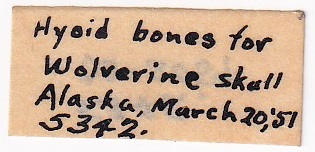 Hyoid bones for
Wolverine skull
Alaska, March 20,'51
5342.